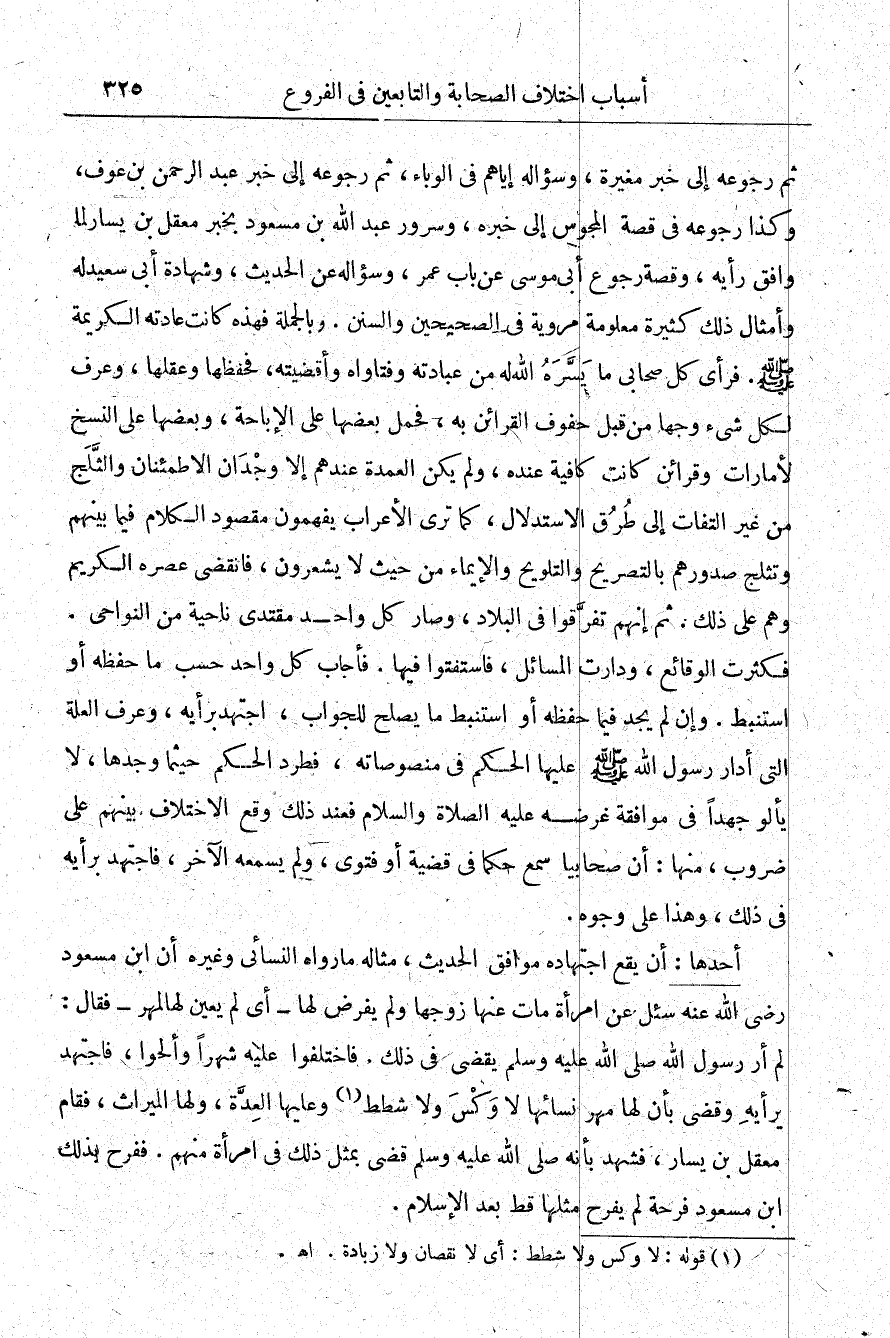 أسباب اختلاف الصحابة والتابعين فى الفروع ٣٢٥
ثم رجوعه إلى خبر مغيرة ، وسؤاله إياهم فى الوباء ، ثم رجوعه إلى خبر عبد الرحمن بن عوف،
وكذا رجوعه فى قصة المجوس إلى خبره ، وسرور عبد الله بن مسعود بخبر معقل بن يسار لما
وافق رأيه ، وقصة رجوع أبى موسى عن باب عمر ، وسؤاله عن الحديث ، وشهادة أبى سعيد له
وأمثال ذلك كثيرة معلومة مروية فى الصحيحين والسنن . وبالجملة فهذه كانت عادته الكريمة
ﷺ . فرأى كل صحابى ما يَسَّرَهُ الله له من عبادته وفتاواه وأقضيته، فحفظها وعقلها ، وعرف
لكل شىء وجها من قبل حفوف القرائن به ، فحمل بعضها على الإباحة ، وبعضها على النسخ
لأمارات وقرائن كانت كافية عنده ، ولم يكن العمدة عندهم إلا وجْدَان الاطمئنان والثَّلَج
من غير التفات إلى طُرُق الاستدلال ، كما ترى الأعراب يفهمون مقصود الكلام فيما بينهم
وتثلج صدورهم بالتصريح والتلويح والإيماء من حيث لا يشعرون ، فانقضى عصره الكريم
وهم على ذلك . ثم إنهم تفرَّقوا فى البلاد ، وصار كل واحد مقتدى ناحية من النواحى .
فكثرت الوقائع ، ودارت المسائل ، فاستفتوا فيها . فأجاب كل واحد حسب ما حفظه أو
استنبط . وإن لم يجد فيما حفظه أو استنبط ما يصلح للجواب ، اجتهد برأيه ، وعرف العلة
التى أدار رسول الله ﷺ عليها الحكم فى منصوصاته ، فطرد الحكم حيثما وجدها ، لا
يألو جهداً فى موافقة غرضه عليه الصلاة والسلام فعند ذلك وقع الاختلاف بينهم على
ضروب ، منها : أن صحابيا سمع حكما فى قضية أو فتوى ، ولم يسمعه الآخر ، فاجتهد برأيه
فى ذلك ، وهذا على وجوه .
أحدها : أن يقع اجتهاده موافق الحديث ، مثاله ما رواه النسائى وغيره أن ابن مسعود
رضى الله عنه سئل عن امرأة مات عنها زوجها ولم يفرض لها ــ أى لم يعين لها المهر ــ فقال :
لم أر رسول الله صلى الله عليه وسلم يقضى فى ذلك . فاختلفوا عليه شهراً وألحوا ، فاجتهد
برأيه وقضى بأن لها مهر نسائها لا وَكْسَ ولا شطط(١) وعليها العِدَّة ، ولها الميراث ، فقام
معقل بن يسار ، فشهد بأنه صلى الله عليه وسلم قضى بمثل ذلك فى امرأة منهم . ففرح بذلك
ابن مسعود فرحة لم يفرح مثلها قط بعد الإسلام .
(١) قوله : لا وكس ولا شطط : أى لا نقصان ولا زيادة . اهـ .